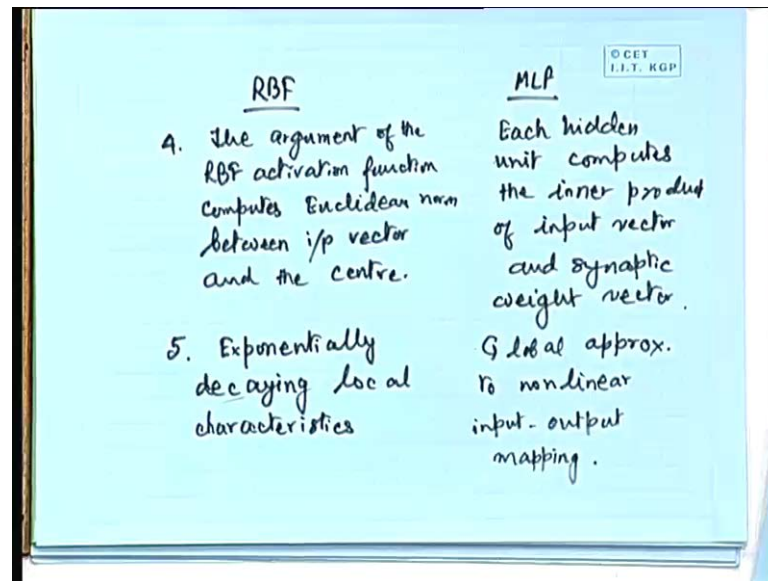 © CET
I.I.T. KGP
RBF
4. The argument of the
RBF activation function
computes Euclidean norm
between i/p vector
and the centre.
5. Exponentially
decaying local
characteristics
MLP
Each hidden
unit computes
the inner product
of input vector
and synaptic
weight vector.
Global approx.
to nonlinear
input-output
mapping.